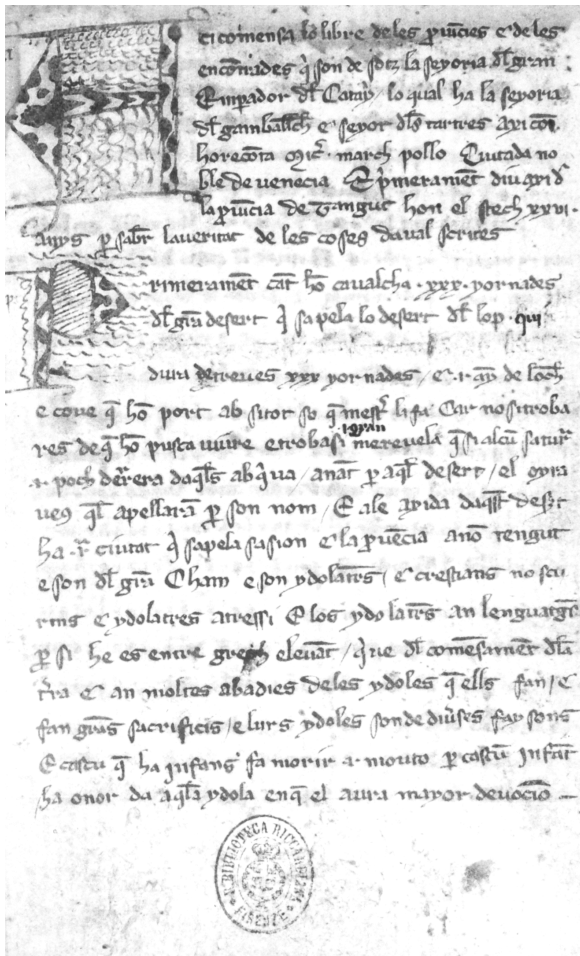 ci comensa lo libre de les prouicies e de les
encontrades q son de sotz la seyoria dl gran
Emperador dl Catay lo qual ha la seyoria
dl gamballech e seyor dls tartres axi com
ho recota march pollo Ciutada no
ble de venecia E primerament diu axi d
la prouicia de Tangut hon el stech xxvi
anys per saber la veritat de les coses daual scrites
rimerament cant ho caualcha xxx jornades
dl gra desert q sapela lo desert dl lop qui
dura de treues xxx jornades e
e coue q ho port ab si tot so q mester li fa Car no si troba
res de q ho puscha viure e troba si i gran merevela q si alcu satur
poch derrera daqls ab q va anat per aql desert el oyra
veus ql apellara per son nom E a le exida daqst desert
ha ciutat q sapela sasion e la prouencia a no tengut
e son dl gra Cham e son ydolatres e crestians nosto
rins e ydolatres atressi E los ydolatres an lenguatge
per si he es entre grech e levant q ve dl comensament dla
tra E an moltes abadies de les ydoles q ells fan E
fan grans sacrificis e lurs ydoles son de diverses faysons
E cascu q ha infans fa morir mouto per cascun infant
ha onor da aqla ydola en q el aura mayor devocio
BIBLIOTECA RICCARDIANA
FIRENZE